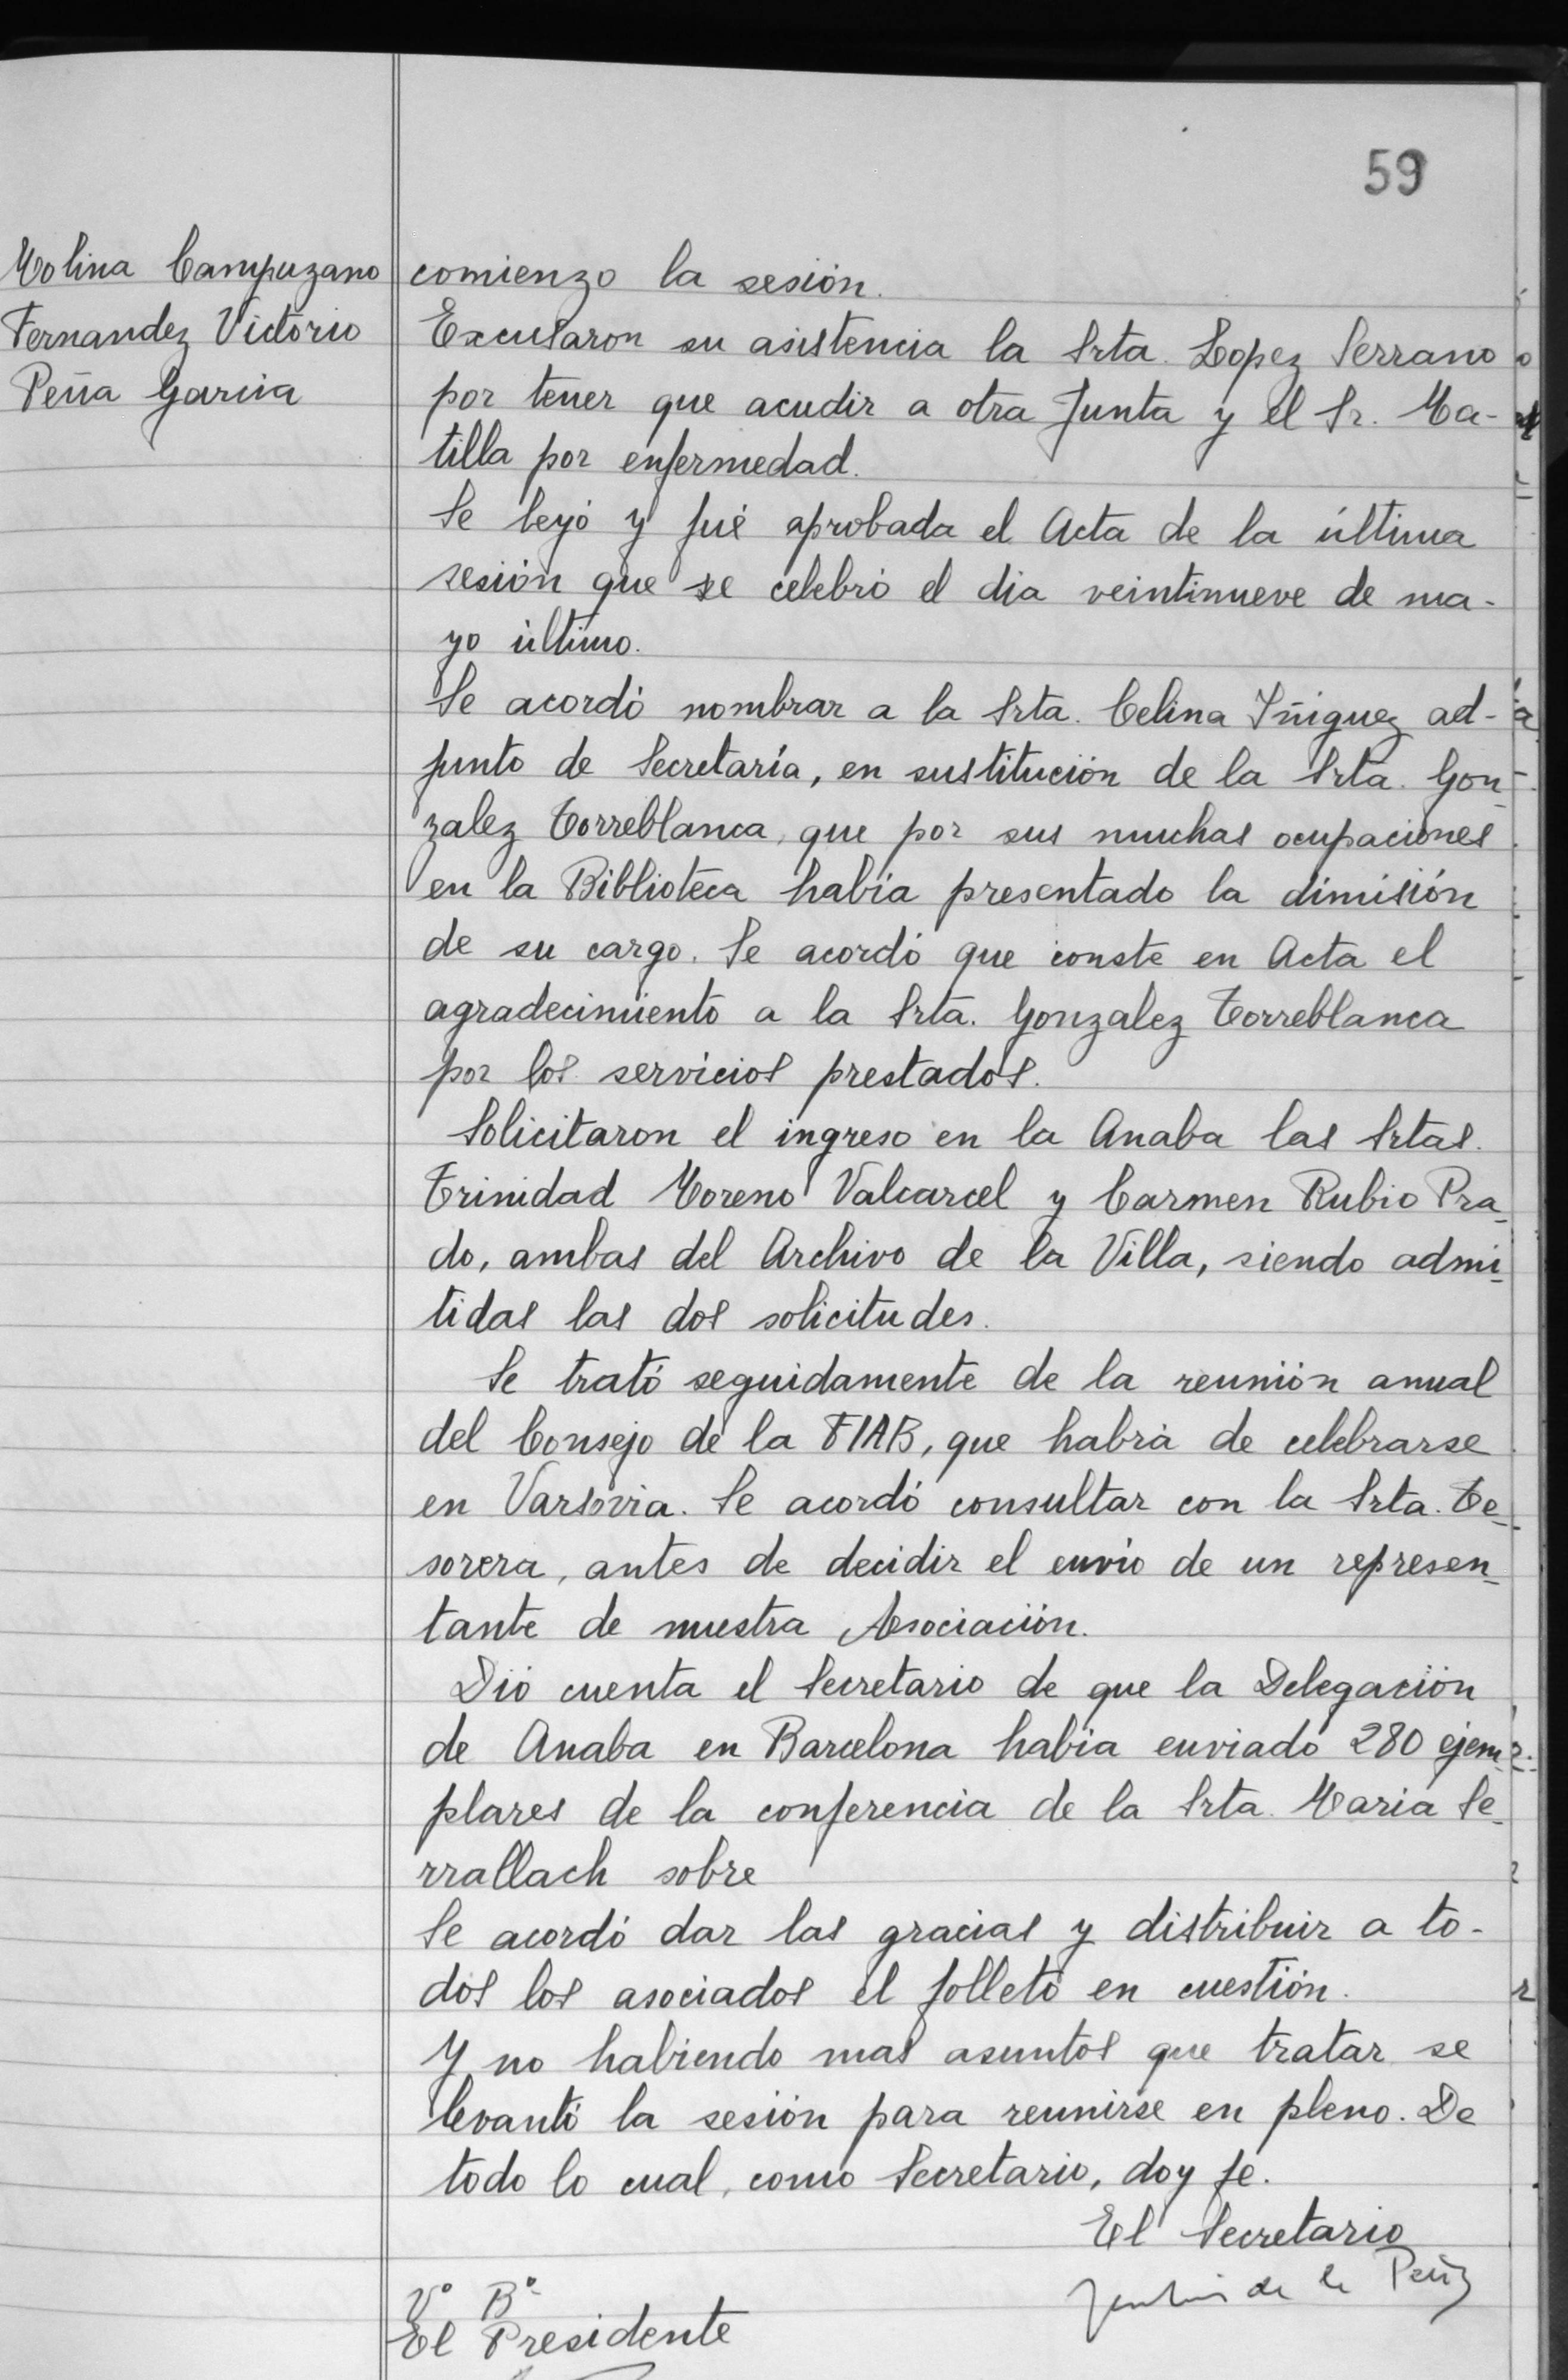 59
Molina Campuzano
Fernandez Victorio
Peña Garcia
comienzo la sesión.
Excusaron su asistencia la Srta. Lopez Serrano
por tener que acudir a otra Junta y el Sr. Ma-
tilla por enfermedad.
Se leyó y fué aprobada el Acta de la última
sesión que se celebró el dia veintinueve de ma-
yo último.
Se acordó nombrar a la Srta. Celina Yñiguez ad-
junto de Secretaría, en sustitución de la Srta. Gon-
zalez Torreblanca, que por sus muchas ocupaciones
en la Biblioteca habia presentado la dimisión
de su cargo. Se acordó que conste en Acta el
agradecimiento a la Srta. Gonzalez Torreblanca
por los servicios prestados.
Solicitaron el ingreso en la Anaba las Srtas.
Trinidad Moreno Valcarcel y Carmen Rubio Pra-
do, ambas del Archivo de la Villa, siendo admi-
tidas las dos solicitudes.
Se trató seguidamente de la reunión anual
del Consejo de la FIAB, que habrá de celebrarse
en Varsovia. Se acordó consultar con la Srta. Te-
sorera, antes de decidir el envio de un represen-
tante de nuestra Asociación.
Dió cuenta el Secretario de que la Delegación
de Anaba en Barcelona habia enviado 280 ejem-
plares de la conferencia de la Srta. Maria Se-
rrallach sobre
Se acordó dar las gracias y distribuir a to-
dos los asociados el folleto en cuestión.
Y no habiendo mas asuntos que tratar se
levantó la sesión para reunirse en pleno. De
todo lo cual, como Secretario, doy fe.
El Secretario
de la Peña
Vº Bº
El Presidente